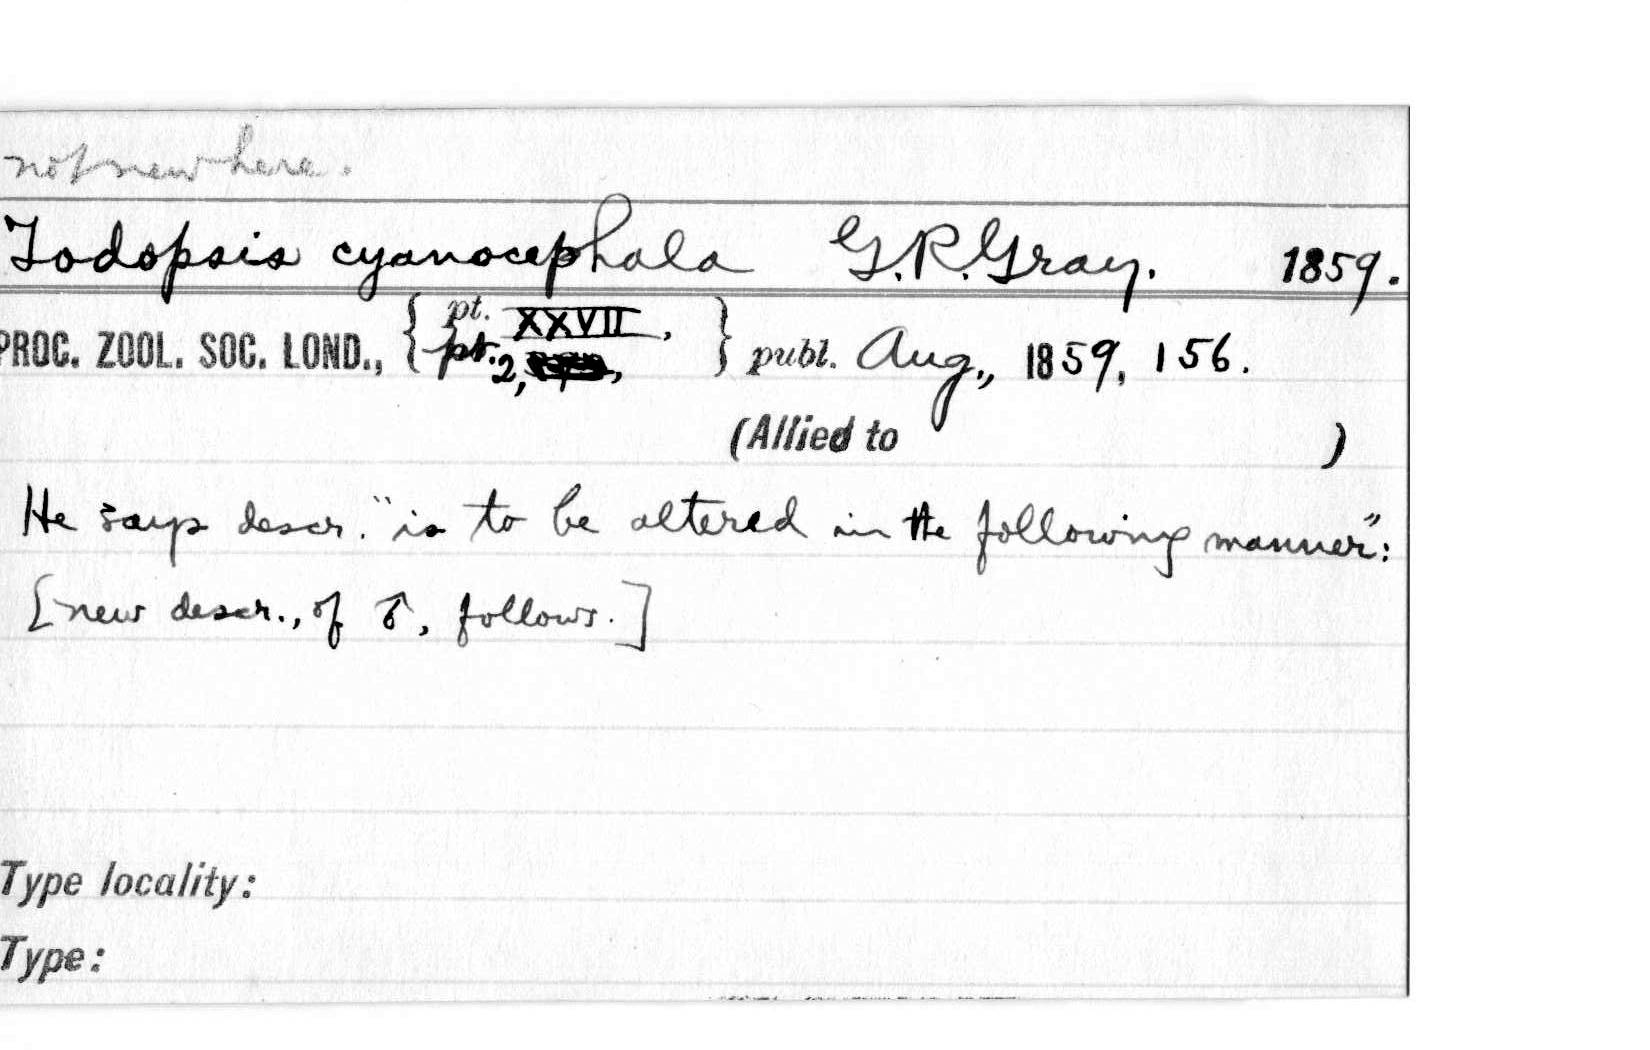 not new here.
Todopsis cyanocephala G.R.Gray. 1859.
PROC. ZOOL. SOC. LOND., { pt. XXVII, pt. 2, } publ. Aug., 1859, 156.
(Allied to )
He says descr. "is to be altered in the following manner":
[new descr., of ♂, follows.]
Type locality:
Type: